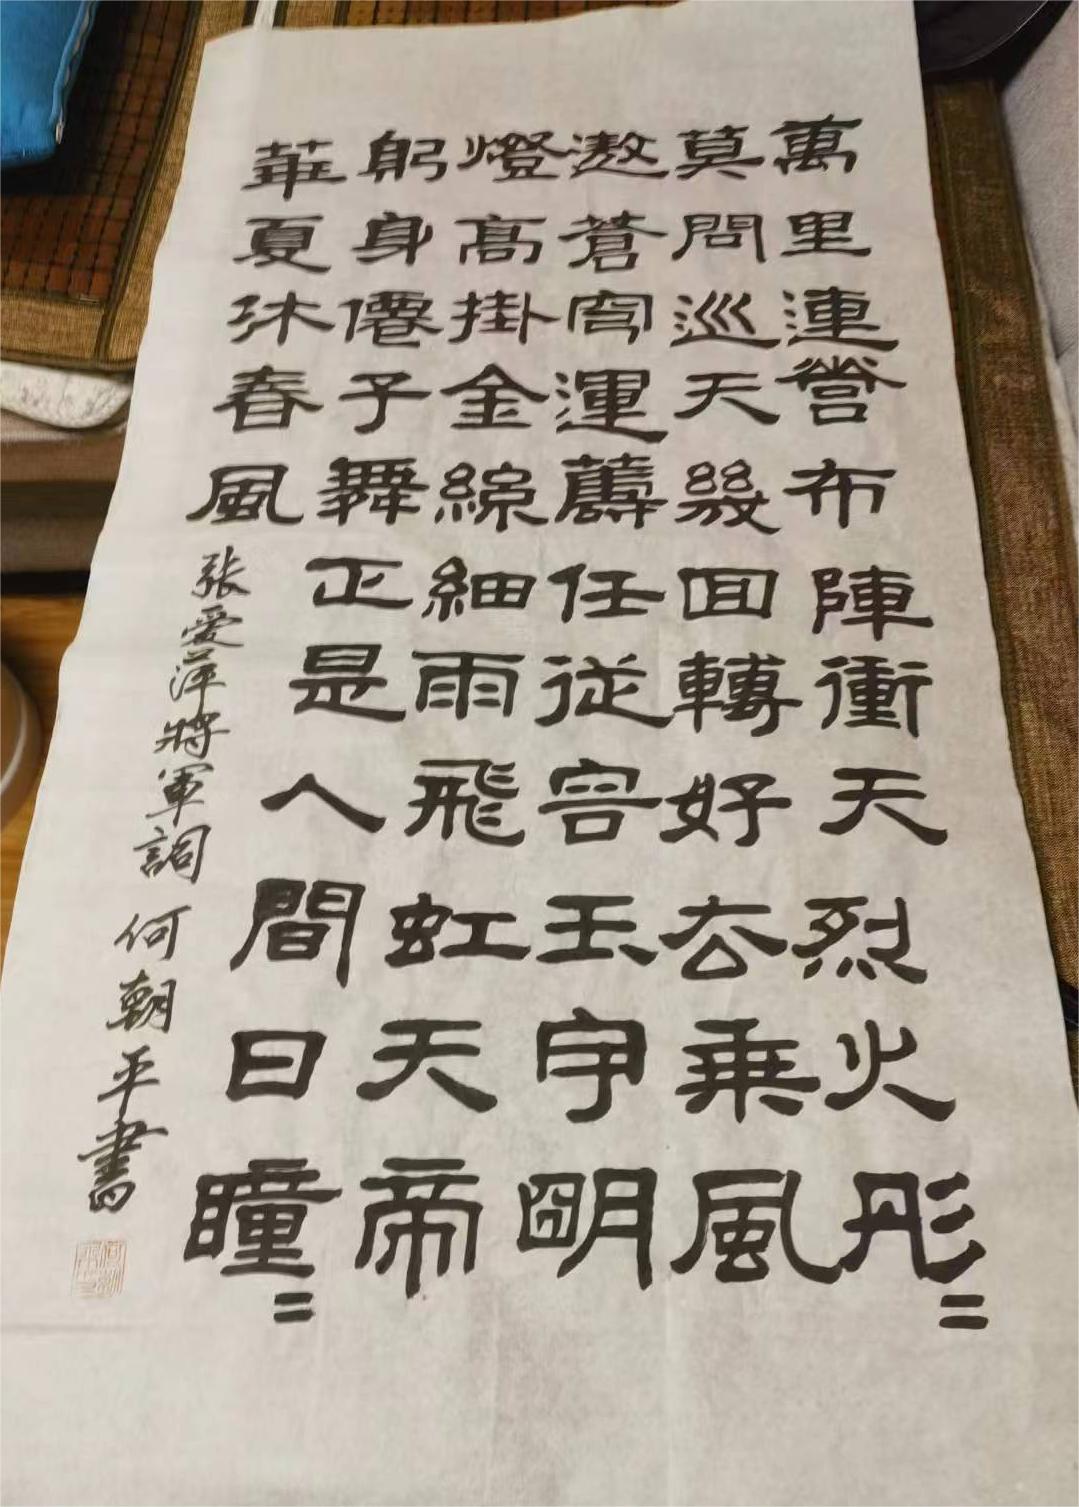 萬里連營布陣衝天烈火彤〻
莫問巡天幾回轉好去乘風
遨蒼穹運籌任從容玉宇明
燈高掛金線細雨飛虹天帝
躬身僊子舞正是人間日曈〻
華夏沐春風
张爱萍將軍詞 何朝平書